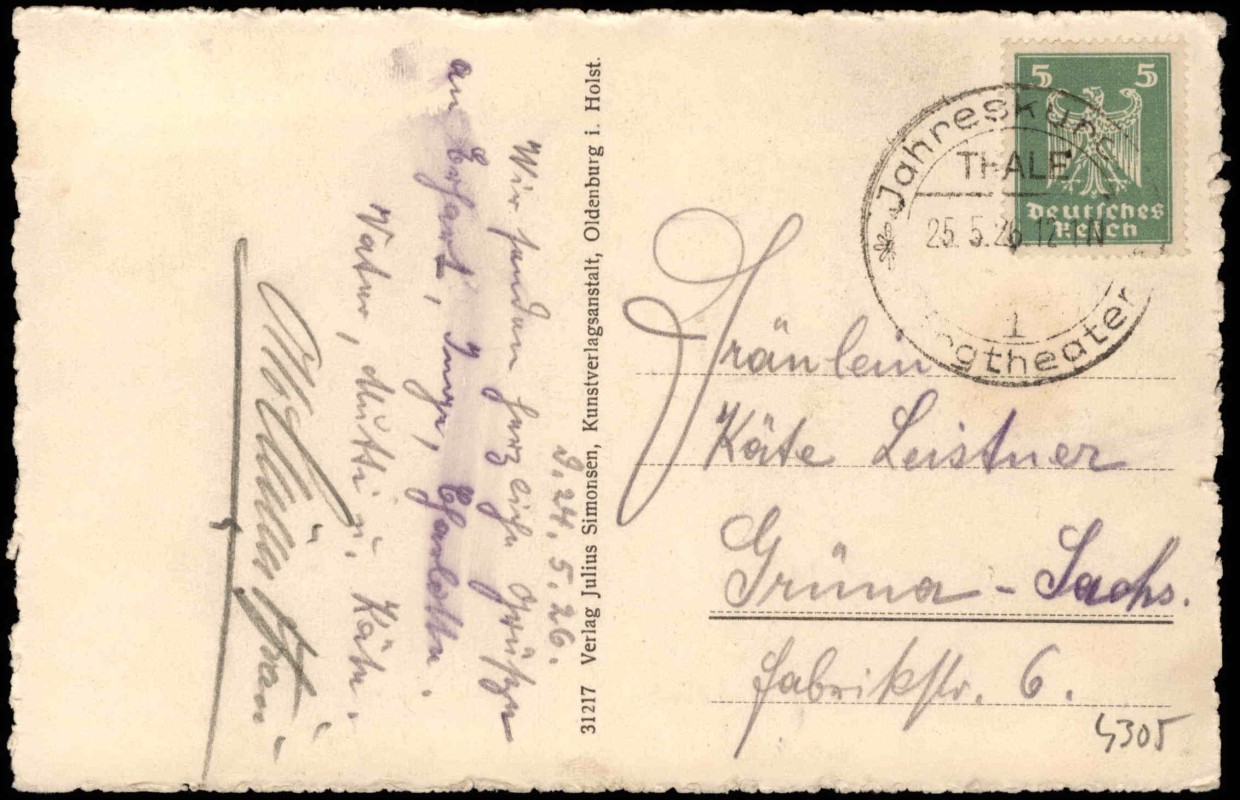 D. 24. 5. 26.
Wir senden herzliche Grüße
an Erhard, Inge, Charlotte.
Vater, Mutti u. Käte.
31217 Verlag Julius Simonsen, Kunstverlagsanstalt, Oldenburg i. Holst.
5 5
Deutsches
Reich
Jahreskurs
THALE
25.5.26.12-1N
1
gtheater
Fräulein
Käte Leistner
Grüna - Sachs.
Fabrikstr. 6.
4305